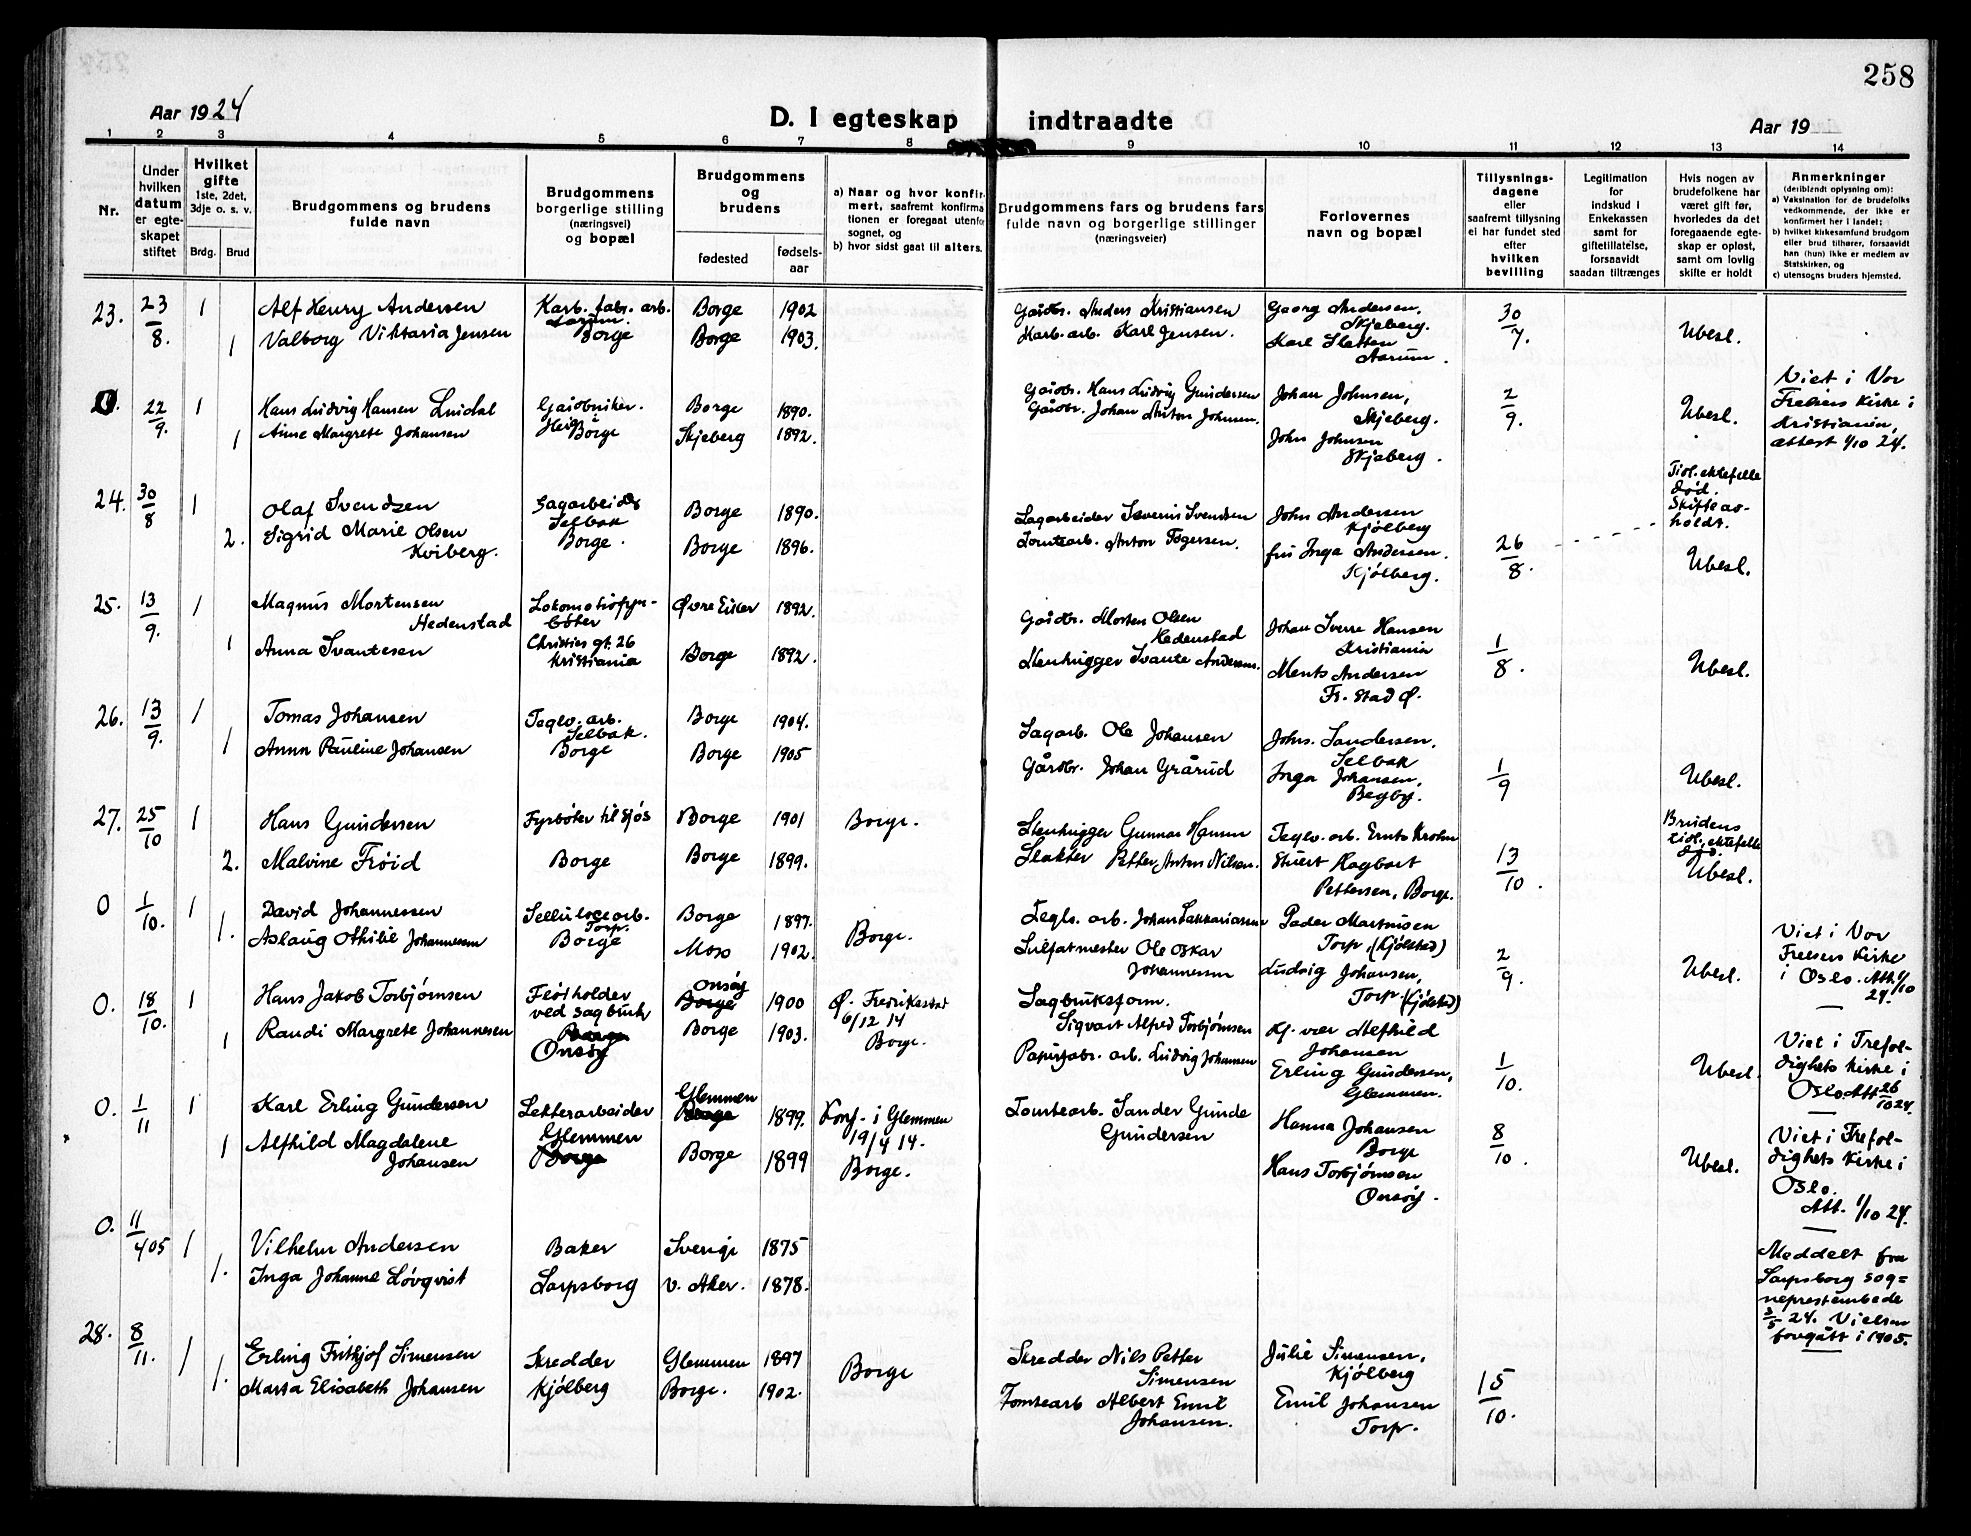 258
Aar 1924
D. I egteskap indtraadte
Aar 19
1 2 3 4 5 6 7 8 9 10 11 12 13 14
Nr.
Under hvilken datum er egteskapet stiftet
Hvilket gifte 1ste, 2det, 3dje o. s. v.
Brdg. Brud
Brudgommens og brudens fulde navn
Brudgommens borgerlige stilling (næringsvei) og bopæl
Brudgommens og brudens
fødested
fødselsaar
a) Naar og hvor konfirmert, saafremt konfirmationen er foregaat utenfor sognet, og
b) hvor sidst gaat til alters.
Brudgommens fars og brudens fars fulde navn og borgerlige stillinger (næringsveier)
Forlovernes navn og bopæl
Tillysningsdagene eller saafremt tillysning ei har fundet sted efter hvilken bevilling
Legitimation for indskud i Enkekassen samt for giftetillatelse, forsaavidt saadan tiltrænges
Hvis nogen av brudefolkene har været gift før, hvorledes da det foregaaende egteskap er opløst, samt om lovlig skifte er holdt
Anmerkninger (deriblandt oplysning om):
a) Vaksination for de brudefolks vedkommende, der ikke er konfirmert her i landet;
b) hvilket kirkesamfund brudgom eller brud tilhører, forsaavidt han (hun) ikke er medlem av Statskirken, og
c) utensogns bruders hjemsted.
23. 23/8. 1 Alf Henry Andersen Karb. fabr. arb. Borge 1902 Gårdbr. Anders Kristiansen Georg Andersen, Skjeberg. 30/7. Ubesl.
1 Valborg Viktaria Jensen Borge Borge 1903. Karb. arb. Karl Jensen. Karl Sletten Aarum.
0. 22/9. 1 Hans Ludvig Hansen Lundal Gårdbruker. Borge 1890. Gårdbr. Hans Ludvig Gundersen Johan Johnsen, Skjeberg. 2/9. Ubesl. Viet i Vor Frelsers Kirke i Kristiania, attest 1/10 24.
1 Anne Margrete Johansen Borge Skjeberg 1892. Gårdbr. Johan Anton Johnsen. John Johnsen Skjeberg.
24. 30/8 1 Olaf Svendsen Sagarbeider Selbak Borge 1890. Sagarbeider Severin Svendsen John Andersen Kjølberg 26/8. Tidl. ektefelle død. Skifte avholdt.
2. Sigrid Marie Olsen Kviberg. Borge. Borge 1896. Tomtearb. Anton Tøgersen. fru Inga Andersen. Kjølberg. Ubesl.
25. 13/9. 1 Magnus Mortensen Hedenstad Lokomotivfyrbøter Øvre Eiker 1892. Gårdbr. Morten Olsen Hedenstad Johan Sverre Hansen Kristiania 1/8. Ubesl.
1 Anna Svantesen Christies gt. 26 Kristiania Borge 1892. Stenhugger Svante Andersen. Ments Andersen Fr. stad Ø.
26. 13/9. 1 Tomas Johansen Teglv. arb. Selbak. Borge 1904. Sagarb. Ole Johansen Johs. Sandersen, Selbak 1/9 Ubesl.
1 Anna Pauline Johansen Borge Borge 1905 Gårdbr. Johan Grårud Inga Johansen, Begby.
27. 25/10 1 Hans Gundersen Fyrbøter til sjøs Borge 1901 Borge. Stenhugger Gunnar Hansen Teglv. arb. Ernts Krohn 13/10. Brudens tidl. ektefelle død.
2. Malvine Frøid Borge Borge 1899. Slakter Petter Anton Nilsen. Stuert Hagbart Pettersen, Borge. Ubesl.
0 1/10. 1 David Johannessen Sellulosearb. Torp. Borge 1897. Borge. Tegls. arb. Johan Sakkariassen Peder Martinsen Torp, (Kjølsted) 2/9. Ubesl. Viet i Vor Frelsers Kirke i Oslo. Att. 1/10 24.
1. Aslaug Othilie Johannesen Borge Moss 1902. Sulfatmester Ole Oskar Johannesen Ludvig Johansen, Torp. (Kjølsted)
0. 18/10. 1 Hans Jakob Torbjørnsen Fløtholder ved sagbruk Onsøy Borge 1900 Ø. Fredrikstad 6/12 14 Sagbruksform. Sigvart Alfred Torbjørnsen Kf. vær Alfhild Johansen 1/10. Ubesl. Viet i Trefoldighets kirke i Oslo. Att 26/10 24.
1 Randi Margrete Johannesen Borge Onsøy Borge 1903. Borge. Papirfabr. arb. Ludvig Johansen Erling Gundersen, Glemmen.
0. 1/11 1 Karl Erling Gundersen Lekterarbeider Glemmen Borge 1899. Konf. i Glemmen 19/4 14. Tomtearb. Sander Gunde Gundersen Hanna Johansen Borge 8/10. Ubesl. Viet i Trefoldighets kirke i Oslo. Att. 1/10 24.
1 Alfhild Magdalene Johansen Glemmen Borge Borge 1899 Borge. Hans Torbjørnsen Onsøy.
0. 11/4 05 1 Vilhelm Andersen Baker Sverige 1875 Meddelt fra Sarpsborg sogneprestembede 3/5 24. Vielsen foregått i 1905.
1. Inga Johanne Løvqvist Sarpsborg V. Aker. 1878.
28. 8/11. 1 Erling Frithjof Simensen Skredder Glemmen 1897 Borge Skredder Nils Petter Simensen Julie Simensen, Kjølberg 15/10.
1. Marta Elisabeth Johansen Kjølberg Borge. 1902. Tomtearb Albert Emil Johansen. Emil Johansen Torp.